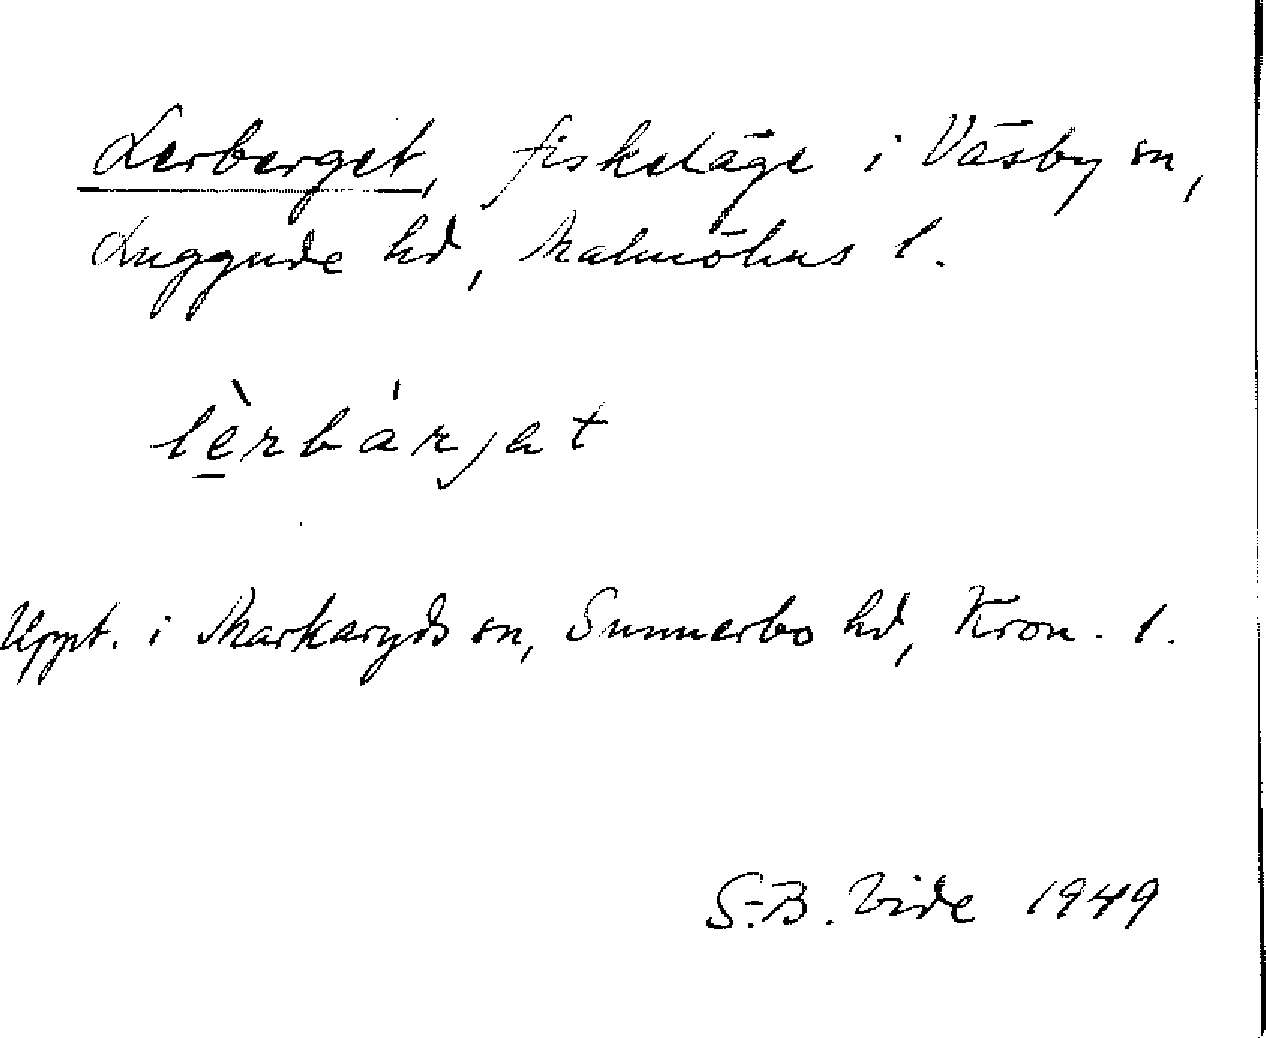 Lerberget, fiskeläge i Väsby sn,
Luggude hd, Malmöhus l.
lè̱rbárjat
Uppt. i Markaryds sn, Sunnerbo hd, Kron. l.
S.-B. Vide 1949